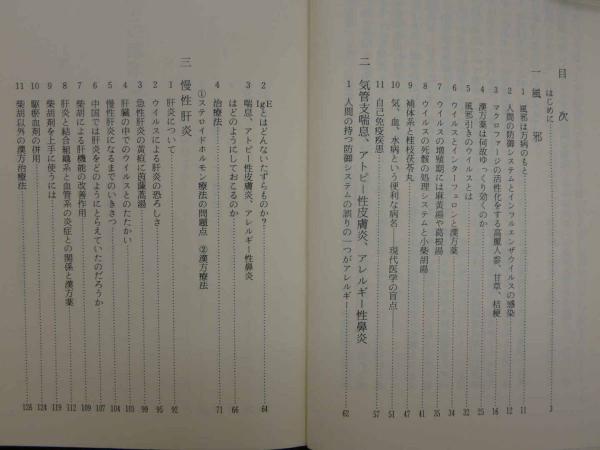 目次
はじめに 3
一 風邪
1 風邪は万病のもと 11
2 人間の防御システムとインフルエンザウイルスの感染 12
3 マクロファージの活性化をする高麗人参、甘草、桔梗 16
4 漢方薬は何故ゆっくり効くのか 25
5 風邪引きのウイルスとは 32
6 ウイルスとインターフェロンと漢方薬 34
7 ウイルスの増殖期には麻黄湯や葛根湯 35
8 ウイルスの死骸の処理システムと小柴胡湯 41
9 補体系と桂枝茯苓丸 47
10 気、血、水病という便利な病名――現代医学の盲点 51
11 自己免疫疾患 57
二 気管支喘息、アトピー性皮膚炎、アレルギー性鼻炎
1 人間の持つ防御システムの誤りの一つがアレルギー 62
2 IgEとはどんないたずらものか? 64
3 喘息、アトピー性皮膚炎、アレルギー性鼻炎
はどのようにしておこるのか 66
4 治療法 71
①ステロイドホルモン療法の問題点 ②漢方療法
三 慢性肝炎
1 肝炎について 92
2 ウイルスによる肝炎の恐ろしさ 95
3 急性肝炎の黄疸に茵蔯蒿湯 99
4 肝臓の中でのウイルスとのたたかい 101
5 慢性肝炎になるまでのいきさつ 104
6 中国では肝炎をどのようにとらえていたのだろうか 107
7 柴胡による肝機能の改善作用 109
8 肝炎と結合組織系と血管系の炎症との関係と漢方薬 112
9 柴胡剤を上手に使うには 119
10 駆瘀血剤の併用 124
11 柴胡以外の漢方治療法 126